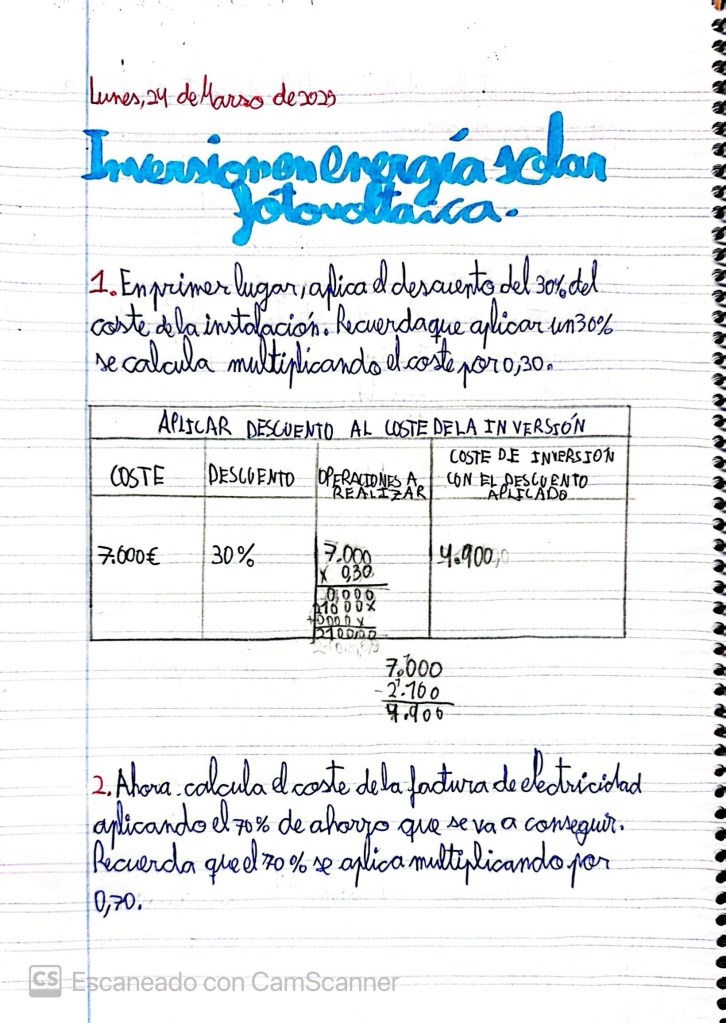 Lunes, 24 de Marzo de 2025
Inversion en energía solar
fotovoltaica.
1. En primer lugar, aplica el descuento del 30% del
coste de la instalación. Recuerda que aplicar un 30%
se calcula multiplicando el coste por 0,30.
APLICAR DESCUENTO AL COSTE DE LA INVERSIÓN
COSTE DESCUENTO OPERACIONES A REALIZAR COSTE DE INVERSION CON EL DESCUENTO APLICADO
7.000€ 30% 7.000 4.900,0
x 0,30
0,000
21000x
+0000x
2100,00
7.000
- 2.100
4.900
2. Ahora calcula el coste de la factura de electricidad
aplicando el 70% de ahorro que se va a conseguir.
Recuerda que el 70% se aplica multiplicando por
0,70.
CS Escaneado con CamScanner